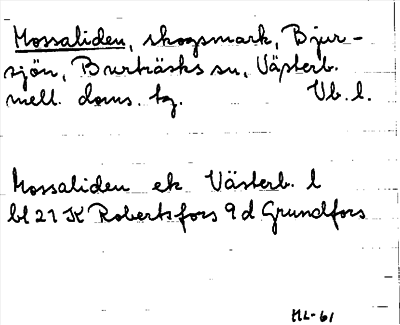 Mossaliden, skogsmark, Bjur-
sjön, Burträsks sn, Västerb.
mell. doms. tg. Vb. l.
Mossaliden ek Västerb. l
bl 21 K Robertsfors 9 d Grundfors
ML-61